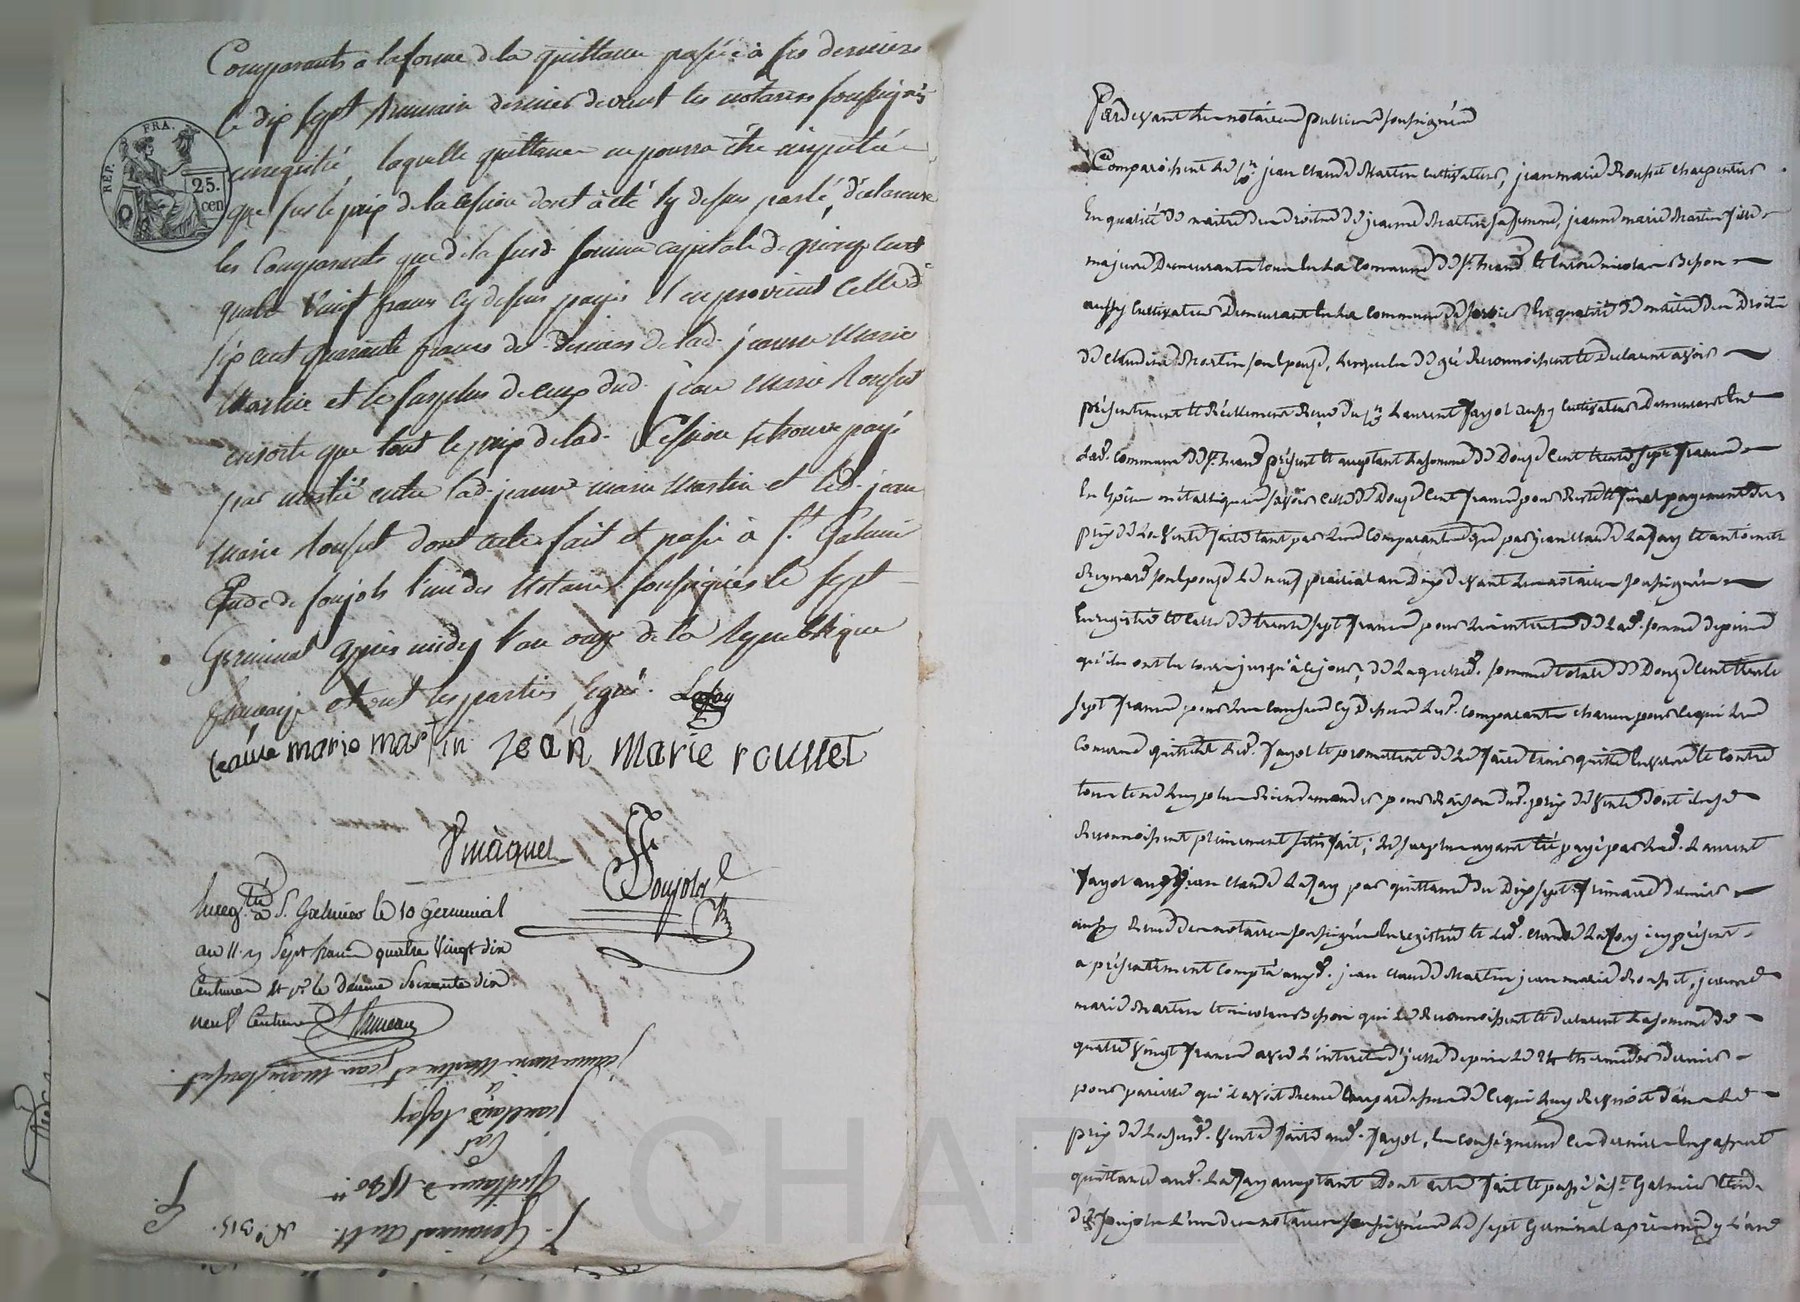 Comparants a la forme de la quittance passée à ses derniers
le dix sept frimaire dernier devant les notaires soussignés
enregistré, laquelle quittance ne pourra être imputée
que sur le prix de la cession dont à été cy dessus parlé, déclarant
les Comparants que de la susd. somme capitale de quinze cent
quatre vingt francs cy dessus payés il en provient celle de
sept cent quarante francs des deniers de lad. jeanne Marie
Martin et le surplus de ceux dud. jean Marie Rousset
ensorte que tout le prix de lad. Cession se trouve payé
par moitié entre lad. jeanne marie Martin et led. jean
Marie Rousset dont acte fait et passé à St. Galmier
Etude de soujols l'un des Notaires soussignés le sept
Germinal après midy l'an onze de la république
française et ont les parties signé. Lafay
jeanne marie martin Jean Marie rousset
REP. FRA.
25.
cen
Soujols
Enreg.tré à S. Galmier le 10 Germinal
an 11. sept francs quatre vingt dix
Centimes et pr. le décime Soixante dix
neuf Centimes
7. Germinal an 11. N.o 315.
Quittance 1580
Par
Jean Claude Lafay
à
Jeanne Marie Martin et Jean Marie Rousset.
Pardevant les notaires publics soussignés
Comparoissent les Srs. jean claude Martin cultivateur, jean marie Rousset charpentier
En qualité de maitre des droits de jeanne Martin sa femme, jeanne marie Martin fille
majeure Demeurants tous en la Commune de St. et nicolas Besson
aussy cultivateur Demeurant en la Commune de en qualité de maitre des Droits
de claudine Martin son Epouse, lesquels de gré Reconnoissent et declarent avoir
présentement et Réellement Reçu du Sr. Laurent Fayol aussy cultivateur Demeurant en
Lad. Commune de St. présent et acceptant la somme de Douze Cent trente sept francs
En Espèces métalliques savoir celle de Douze Cent francs pour Reste et final payement du
prix de la Vente faite tant par Les Comparants que par jean claude Lafay et antoinette
Reynard son Epouse le neuf prairial an Dix devant les notaires soussignés
Enregistré et celle de trente sept francs pour les interets de Lad. somme depuis
qu'ils ont en cours jusqu'à ce jour; de laquelle d. somme totale de Douze Cent trente
sept francs pour les causes cy Dessus Les d. comparants chacun pour ce qui les
Concerne quittent led. Fayol et promettent de le faire tenir quitte Envers et Contre
tous et ne luy plus Rien demander pour Raison dud. prix de Vente dont ils se
Reconnoissent pleinement satisfait; le surplus ayant été payé par led. Laurent
Fayol aud. jean claude Lafay par quittance du Dix sept frimaire dernier
aussy Reçue des notaires soussignés Enregistré et led. claude Lafay icy présent
a présentement Compté auxd. jean claude Martin jean marie Rousset, jeanne
marie Martin et nicolas Besson qui le Reconnoissent et declarent la somme de
quatre Vingt francs avec l'interet d'icelle depuis le 24 thermidor dernier
pour pareille qu'il avoit Reçue En par dessus de ce qui luy Revenoit dans le
prix de la susd. Vente faite aud. Fayol, En conséquence ces derniers En passent
quittance aud. Lafay acceptant Dont acte fait et passé à St. Galmier Etude
de Soujols l'un des notaires soussignés le sept Germinal après midy l'an
CHARLY